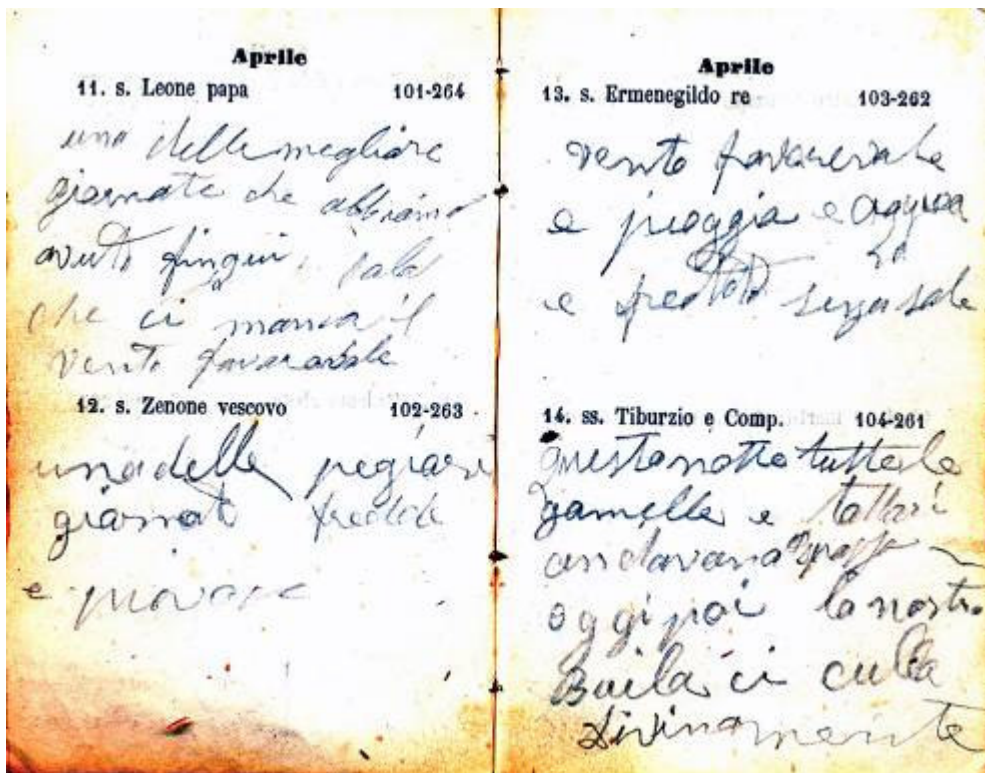 Aprile
11. s. Leone papa 101-264
una delle megliore
giornate che abbiamo
avuto finqui
che ci manca il
vento favaravale
12. s. Zenone vescovo 102-263
una delle pegiori
giornat fredde
e piovose
Aprile
13. s. Ermenegildo re 103-262
vento
e pioggia e
e senza sole
14. ss. Tiburzio e Comp. 104-261
questa notte tutte le
gamelle e
andavano
oggi poi la nostra
Baila ci culla
divinamente